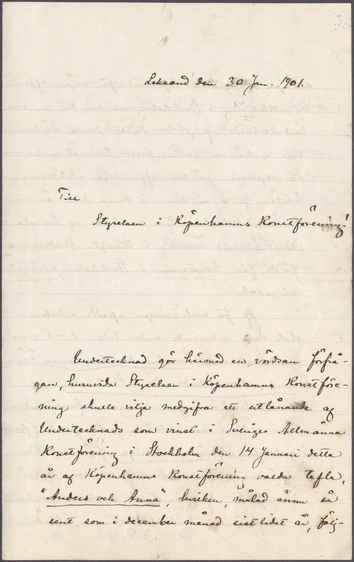 Leksand den 30 Jan. 1901.
Till
Styrelsen i Köpenhamns Konstförening!
Undertecknad gör härmed en vördsam förfrå-
gan, huruvida Styrelsen i Köpenhamns Konstföre-
ning skulle vilja medgifva ett utlånande af
Undertecknads som vinst i Sveriges Allmänna
Konstförening i Stockholm den 14 Januari detta
år af Köpenhamns Konstförening valda tafla,
"Anders och Anna", hvilken, målad ännu så
sent som i december månad sistlidet år, följ-